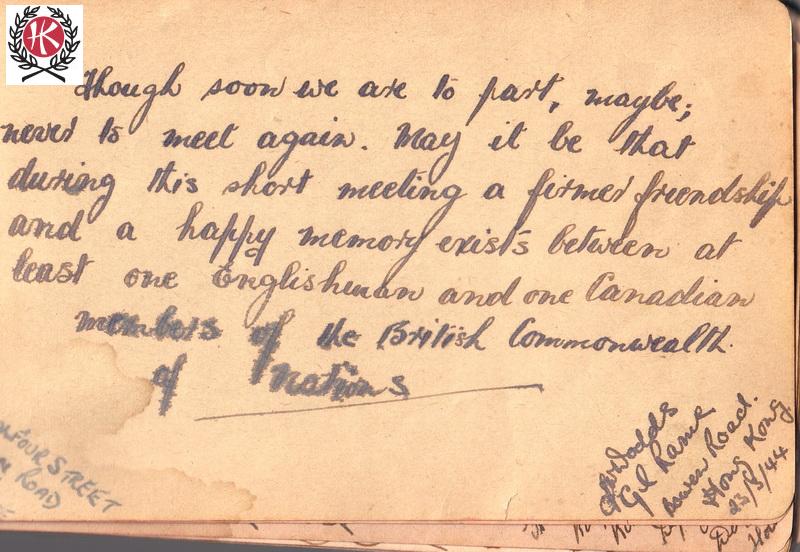 HK
Though soon we are to part, maybe;
never to meet again. May it be that
during this short meeting a firmer freendship
and a happy memory exists between at
least one Englishman and one Canadian
members of the British Commonwealth.
of Nations
Bowen Road.
Hong Kong
23/3/44
STREET
ROAD